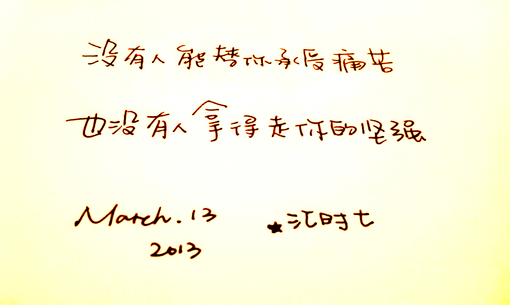 没有人能替你承受痛苦
也没有人拿得走你的坚强
March. 13 ★江时七
2013